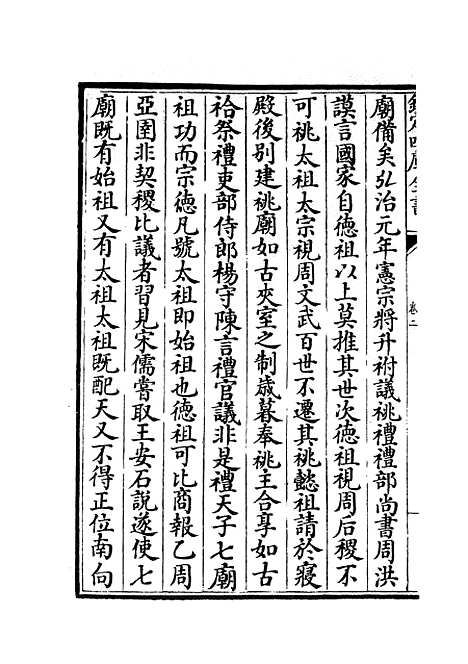 欽定四庫全書
卷二
廟備矣弘治元年憲宗將升祔議祧禮禮部尚書周洪
謨言國家自徳祖以上莫推其世次徳祖視周后稷不
可祧太祖太宗視周文武百世不遷其祧懿祖請於寢
殿後别建祧廟如古夾室之制歳暮奉祧主合享如古
祫祭禮吏部侍郎楊守陳言禮官議非是禮天子七廟
祖功而宗徳凡號太祖即始祖也徳祖可比商報乙周
亞圉非契稷比議者習見宋儒嘗取王安石說遂使七
廟既有始祖又有太祖太祖既配天又不得正位南向